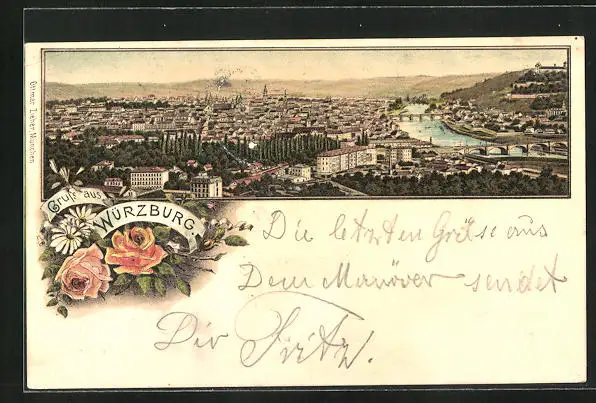 Ottmar Zieher, München
Gruß aus
WÜRZBURG.
Die letzten Grüße aus
Dem Manöver sendet
Dir Fritz.